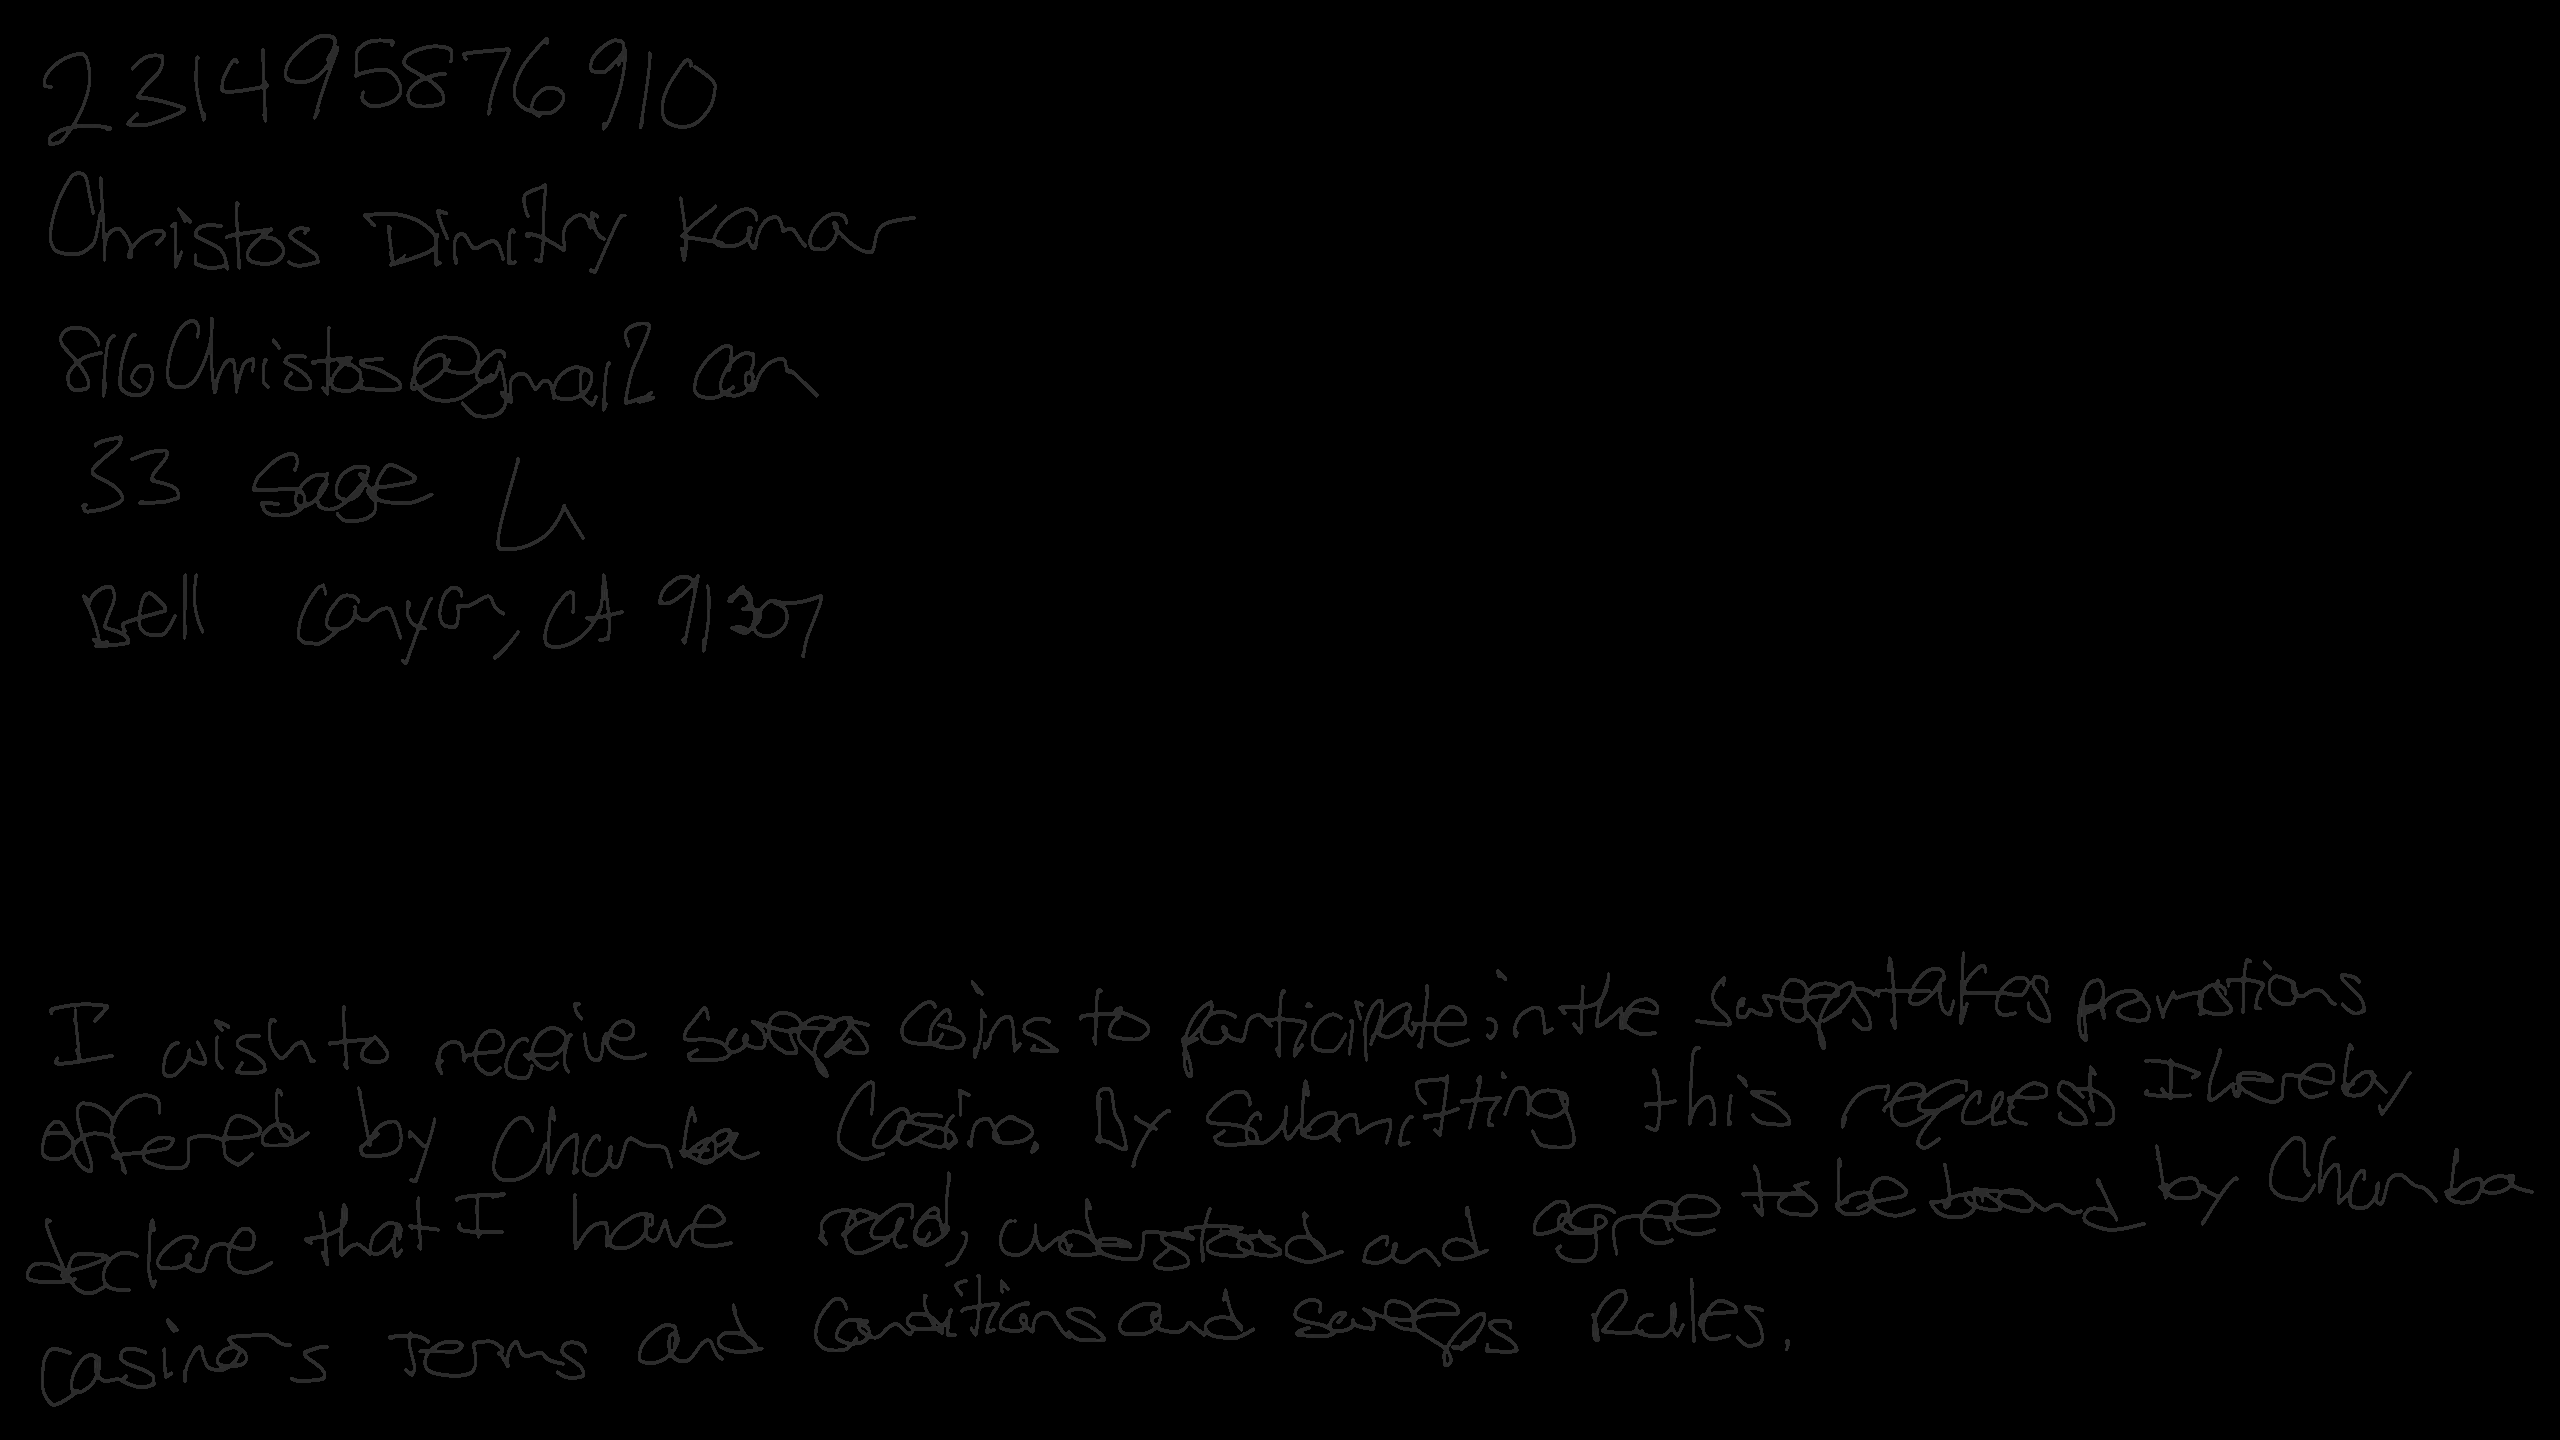 231495876910
Christos Dimitry Kamar
816Christos@gmail com
33 Sage Ln
Bell Canyon, CA 91307
I wish to receive sweeps coins to participate in the sweepstakes promotions
offered by Chumba Casino. By submitting this request I hereby
declare that I have read, understood and agree to be bound by Chumba
Casino's Terms and Conditions and sweeps Rules.